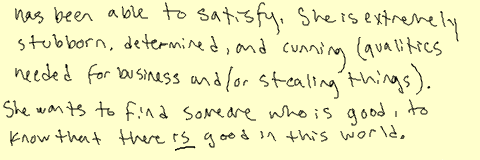 has been able to satisfy. She is extremely
stubborn, determined, and cunning (qualities
needed for business and/or stealing things).
She wants to find someone who is good, to
know that there is good in this world.